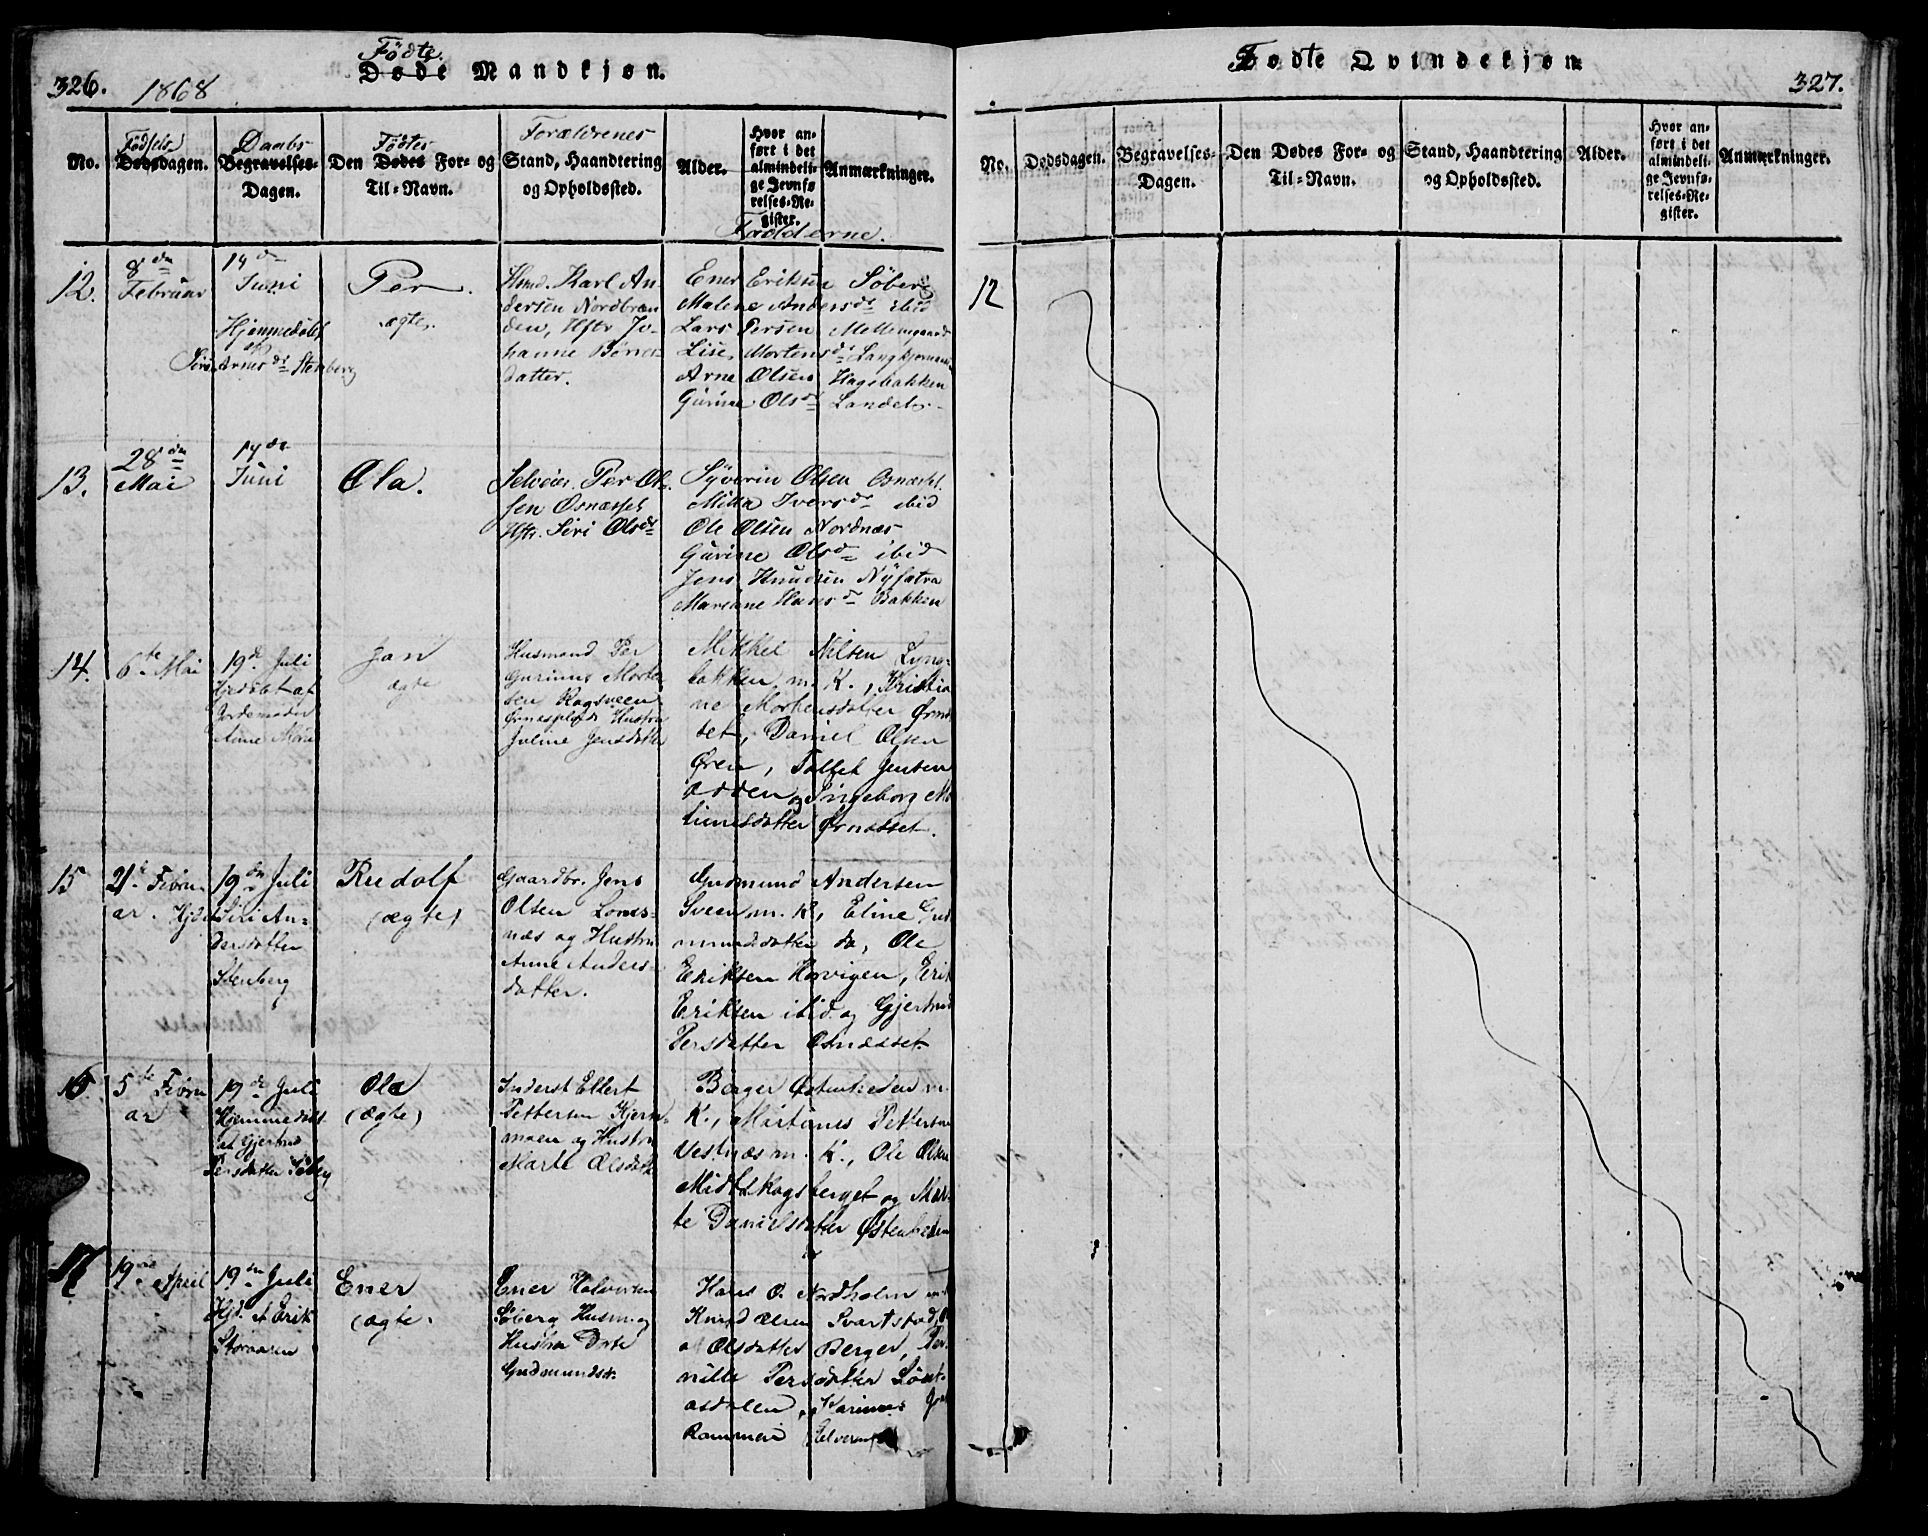 326.
1868
Fødte
Døde Mandkjøn.
No.
Fødsels
Dødsdagen.
Daabs
Begravelses-
Dagen.
Fødtes
Den Dødes For- og
Til-Navn.
Forældrenes
Stand, Haandtering
og Opholdssted.
Alder.
Hvor an-
ført i det
almindeli-
ge Jevnfø-
relses-Re-
gister.
Anmærkninger.
Fadderne.
12.
8de
Februar
14de
Juni
Hjemmedøbt
af
Siri Arnesdr Stenberg
Per.
ægte.
Husmd. Karl An-
dersen Nordbræn
den, Hstr Jo-
hanne Børres-
datter.
Ener Eriksen Søberg
Malene Andersdr ibid
Lars Persen Mellemgaard
Lise Mortensdr
Arne Olsen Hagebakken
Gurine Olsdr
13.
28de
Mai
14de
Juni
Ola.
Selveier Per Ol-
sen Osnæsset
Hstr. Siri Olsdr
Syverin Olsen Osnæsset
Mitta Iversdr ibid
Ole Olsen Nordnæs
Gurine Olsdr ibid
Jens Knudsen Nysætra
Mariane Hansdr Bakken
14.
6te Mai
19de Juli
Hjdøbt af
Jordemoder
Anne Moen
Jan
ægte
Husmand Per
Gurinus Morten
sen Kogsveen
Ørnæspladr. Hustru
Juline Jensdatter
Mikkel Nilsen Lyng-
bakken m. K., Kristia
ne Mortensdatter Ørnæs
set, Daniel Olsen
Øren, Tollef Jensen
Odden og Ingeborg M
tinusdatter Ørnæsset.
15
21de Febru
ar. Hjd
19de Juli
Siri An-
dersdatter
Stenberg
Rudolf
(ægte)
Gaardbr. Jens
Olsen Loms-
næs og Hustru
Anne Anders-
datter.
Gudmund Andersen
Sveen m. K, Eline Gud
mundsdatter do, Ole
Eriksen Horvigen, Erik
Eriksen ibid. og Gjertrud
Persdatter Osnæsset
16.
5te Febru
ar
19de Juli
Hjemmedøbt
af Gjertrud
Persdatter Søberg
Ole
(ægte)
Inderst Ellert
Pettersen Kjern-
moen og Hustru
Marte Olsdatter
Berger Østenheden m
K., Martines Pettersen
Vestnæs m. K., Ole Olsen
Midtskogsberget og Mar-
te Danielsdatter Østenheden
17
19de April
19de Juli
Hjd. af Erik
Stormoen
Ener
(ægte.
Ener Halvorsen
Søberg Husm. og
Hustru Dorte
Gudmundsdr.
Hans O. Nordholm m
Knud Olsen Svartstad,
Olsdatter Berger, Per-
nille Persdatter
asdalen, Karinus
Rammen Halvorsen
Fødte Qvindekjøn
327.
No.
Dødsdagen.
Begravelses-
Dagen.
Den Dødes For- og
Til-Navn.
Stand, Haandtering
og Opholdssted.
Alder.
Hvor an-
ført i det
almindeli-
ge Jevnfø-
relses-Re-
gister.
Anmærkninger.
12